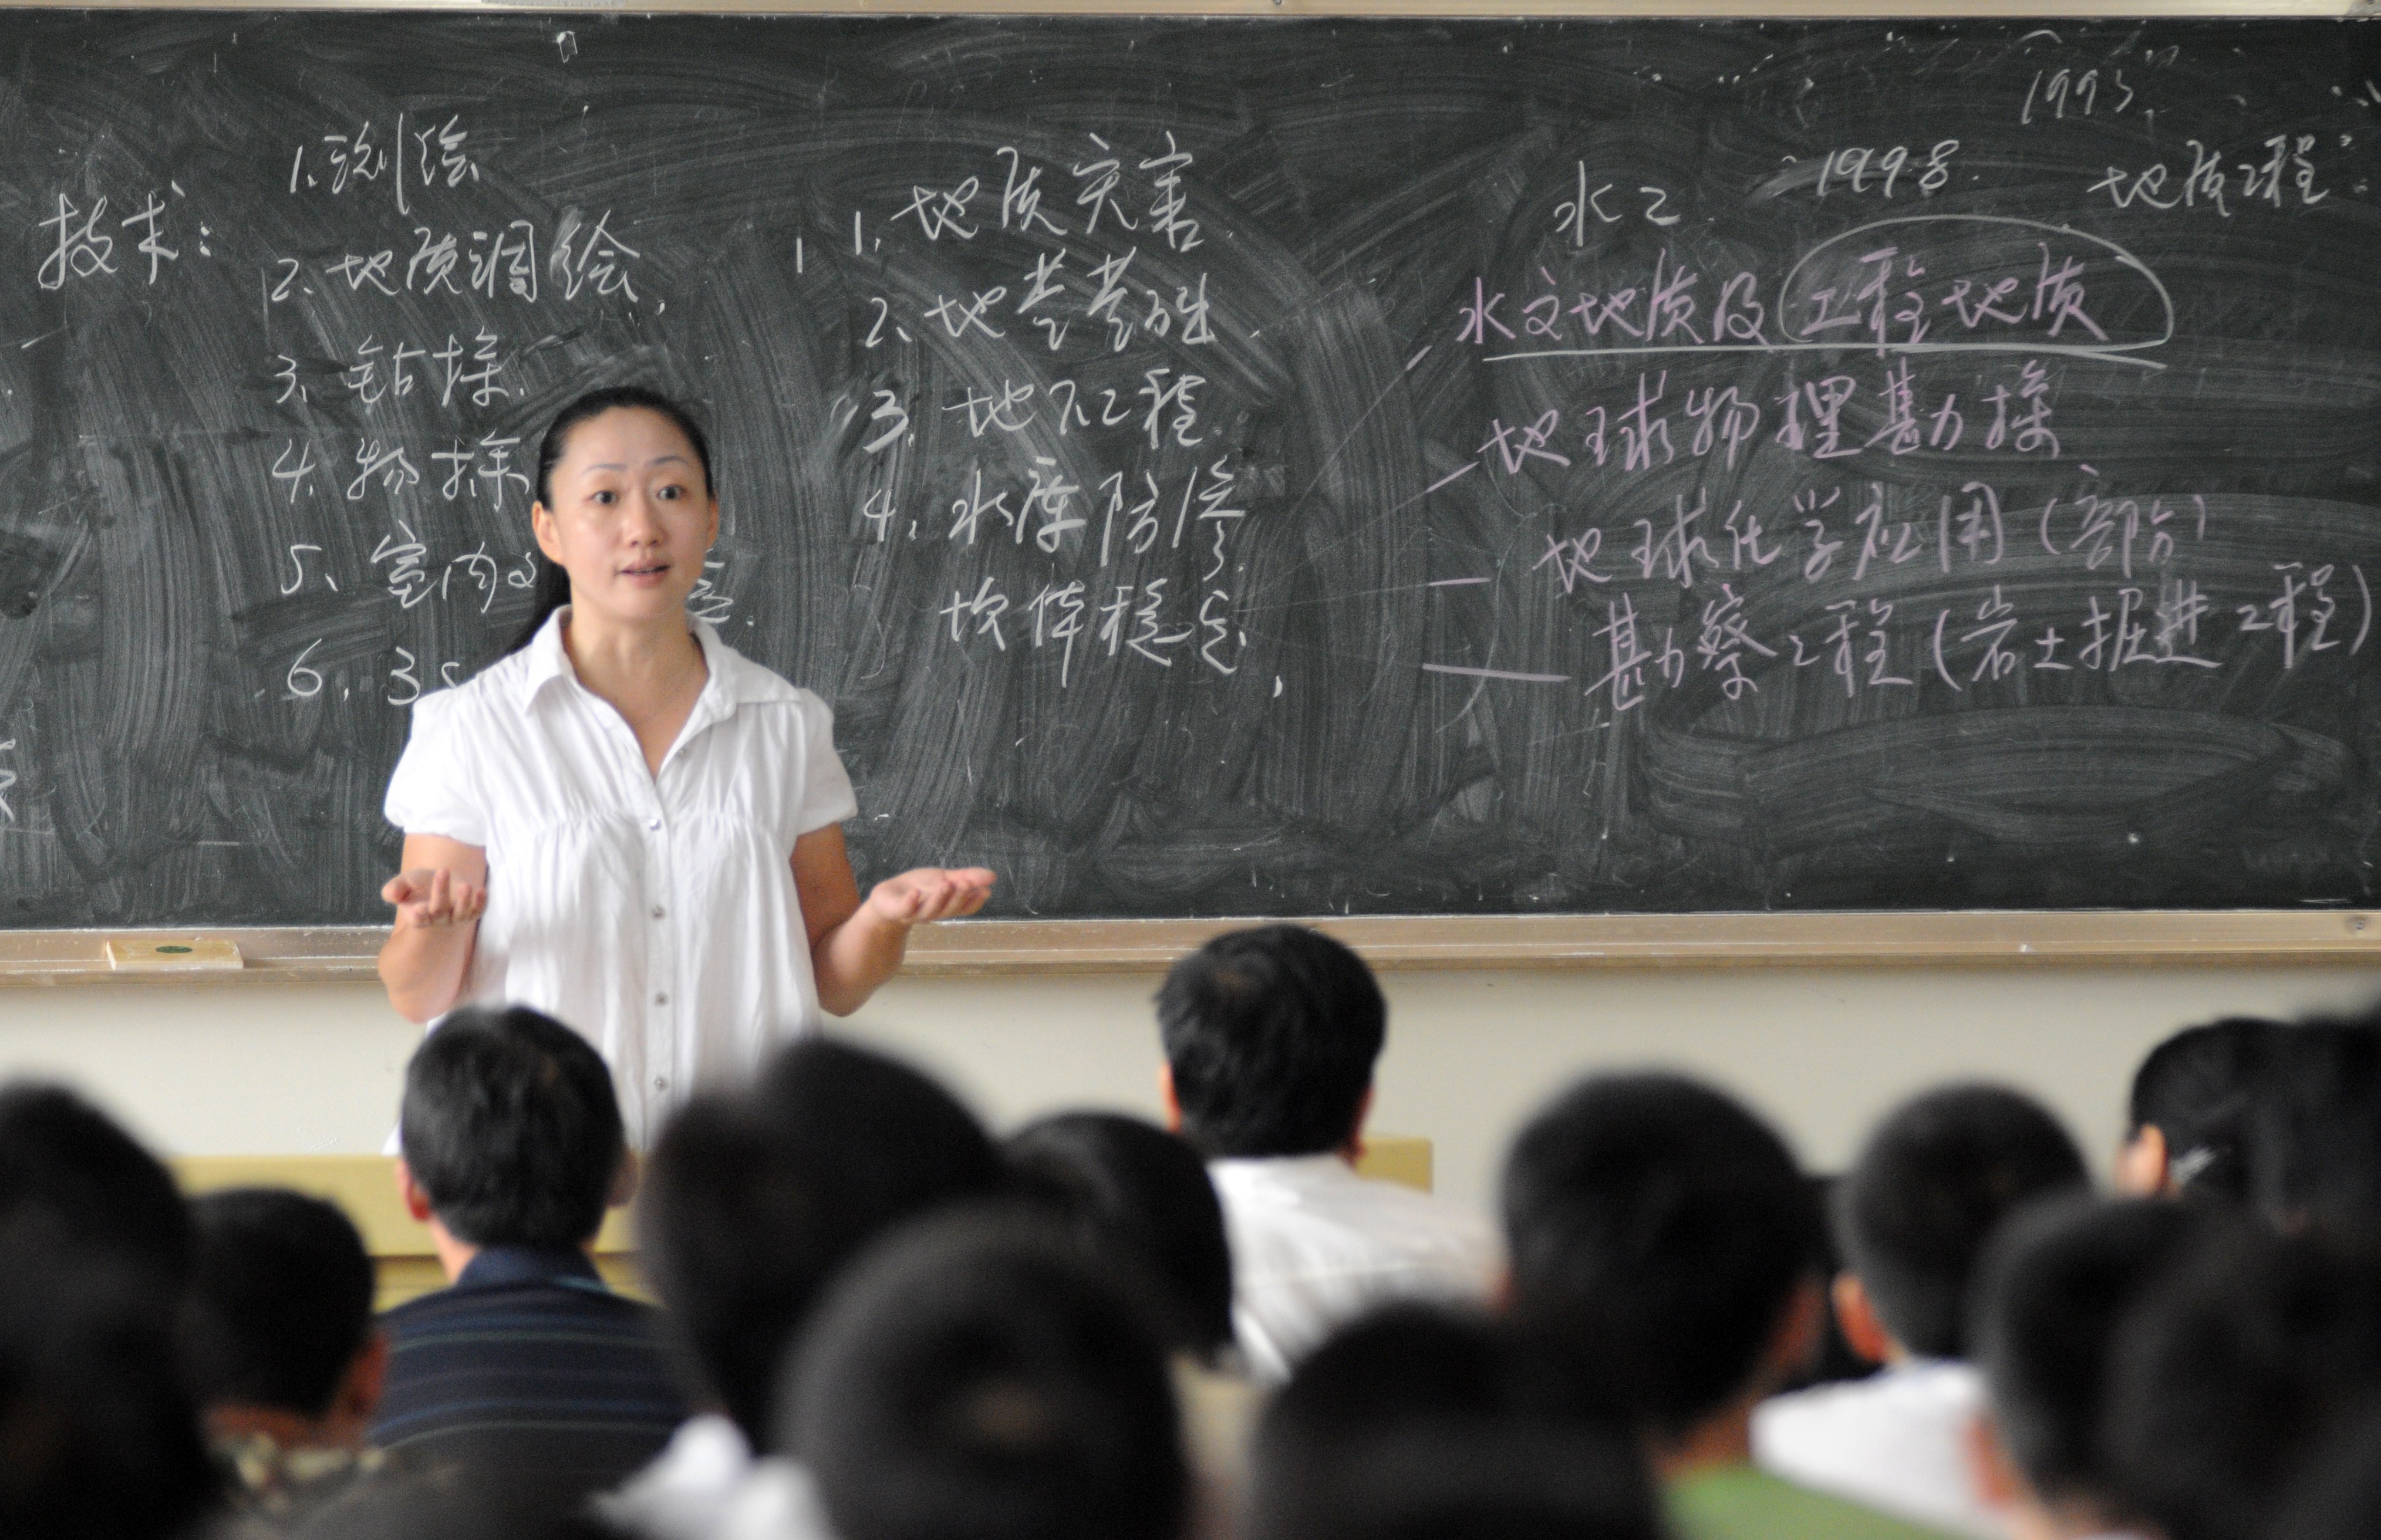 技术:
1.测绘
2.地质调绘
3.钻探
4.物探
5.室内
6.3S
1.地质灾害
2.地基基础
3.地下工程
4.水库防渗
坝体稳定
1993
水工 1998. 地质工程
水文地质及工程地质
地球物理勘探
地球化学应用(部分)
勘察工程(岩土掘进工程)